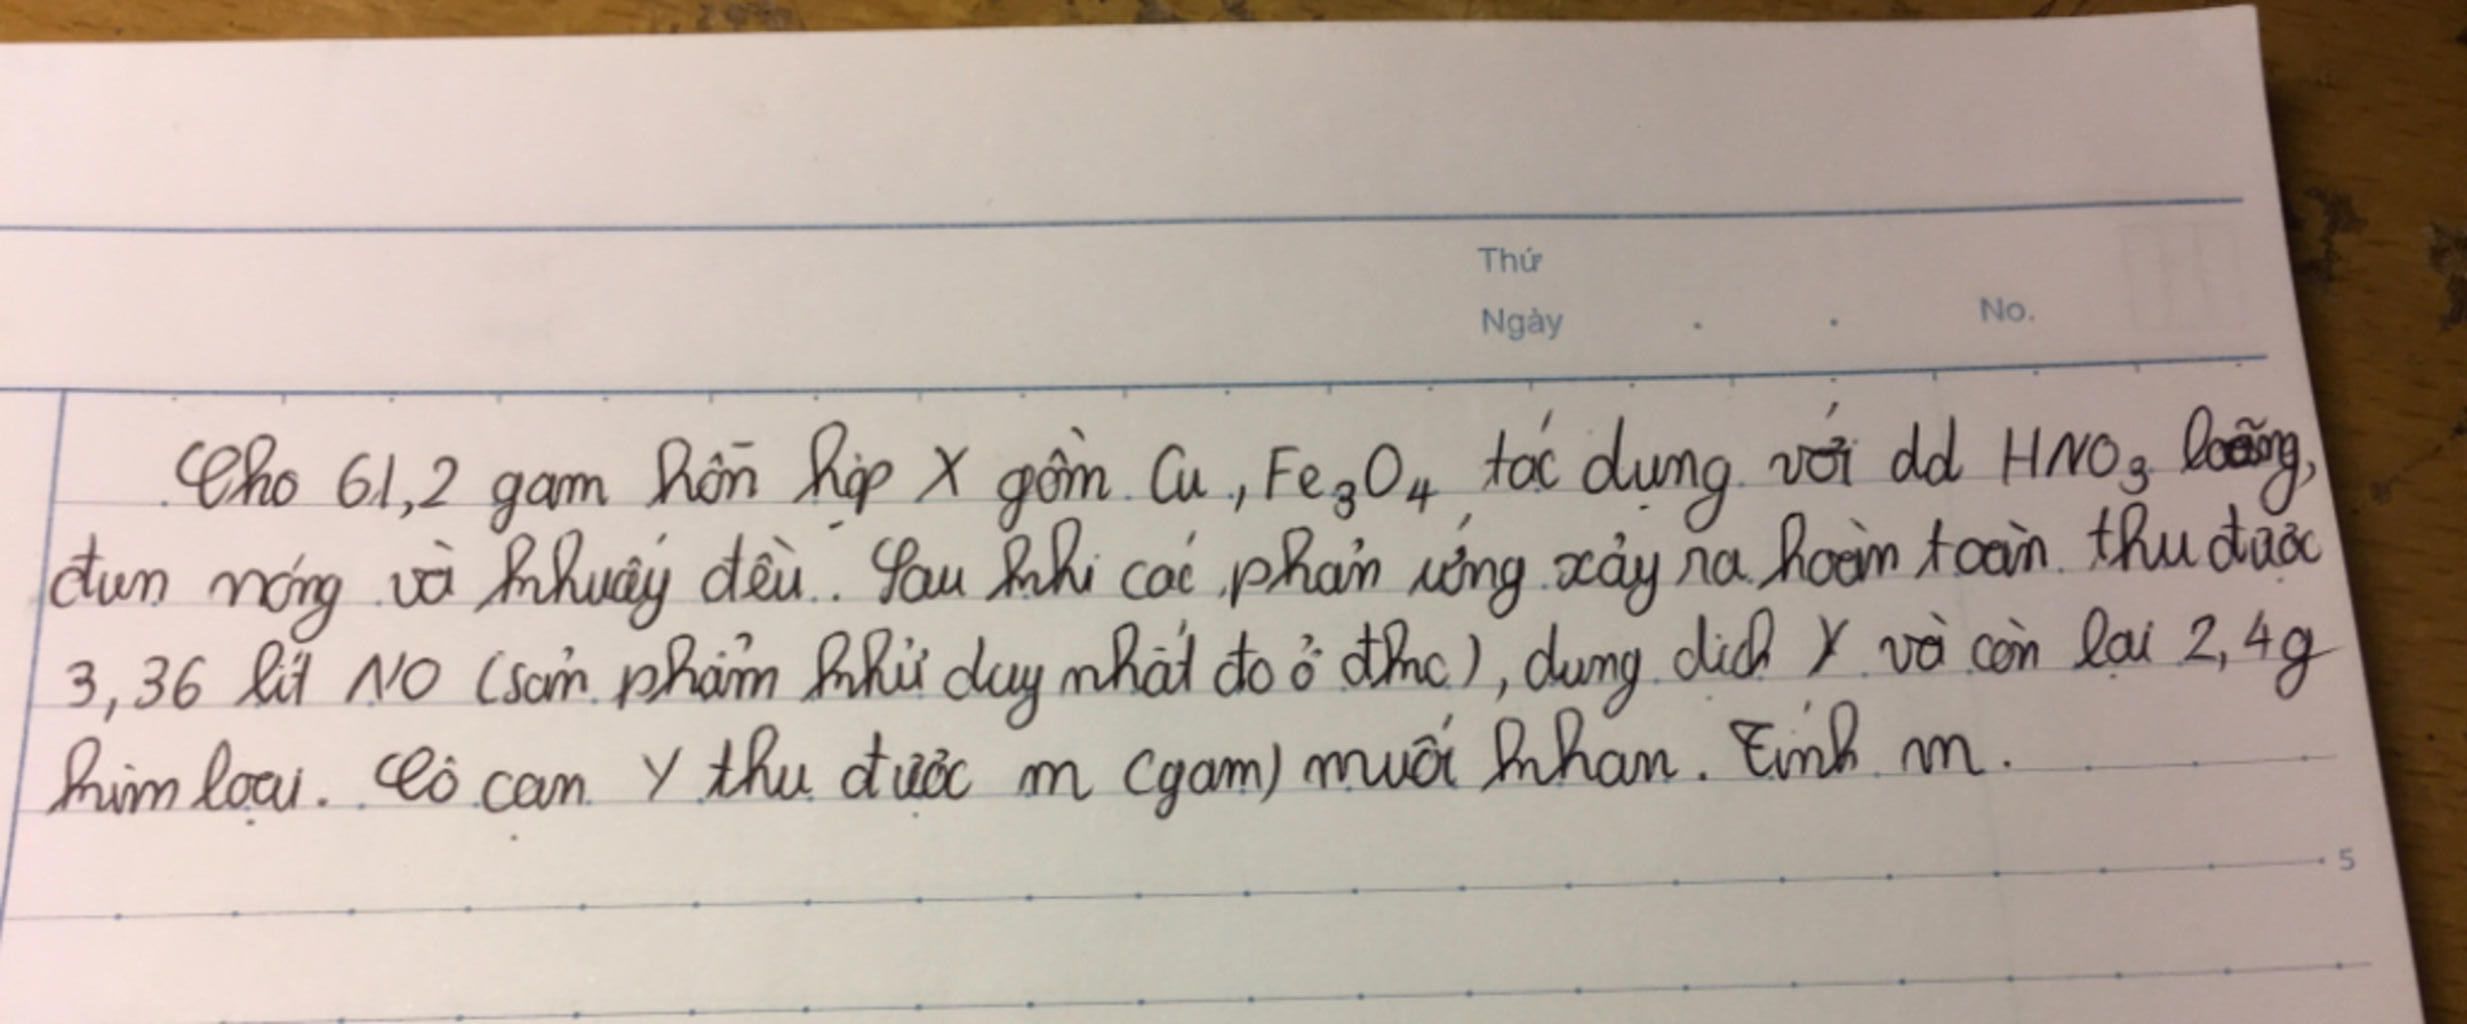 Thứ
Ngày
No.
Cho 61,2 gam hỗn hợp X gồm Cu, Fe3O4 tác dụng với dd HNO3 loãng,
đun nóng và khuấy đều. Sau khi các phản ứng xảy ra hoàn toàn thu được
3,36 lít NO (sản phẩm khử duy nhất đo ở đkc), dung dịch Y và còn lại 2,4g
kim loại. Cô cạn Y thu được m (gam) muối khan. Tính m.
5